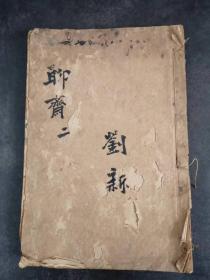 聊齋二
劉新